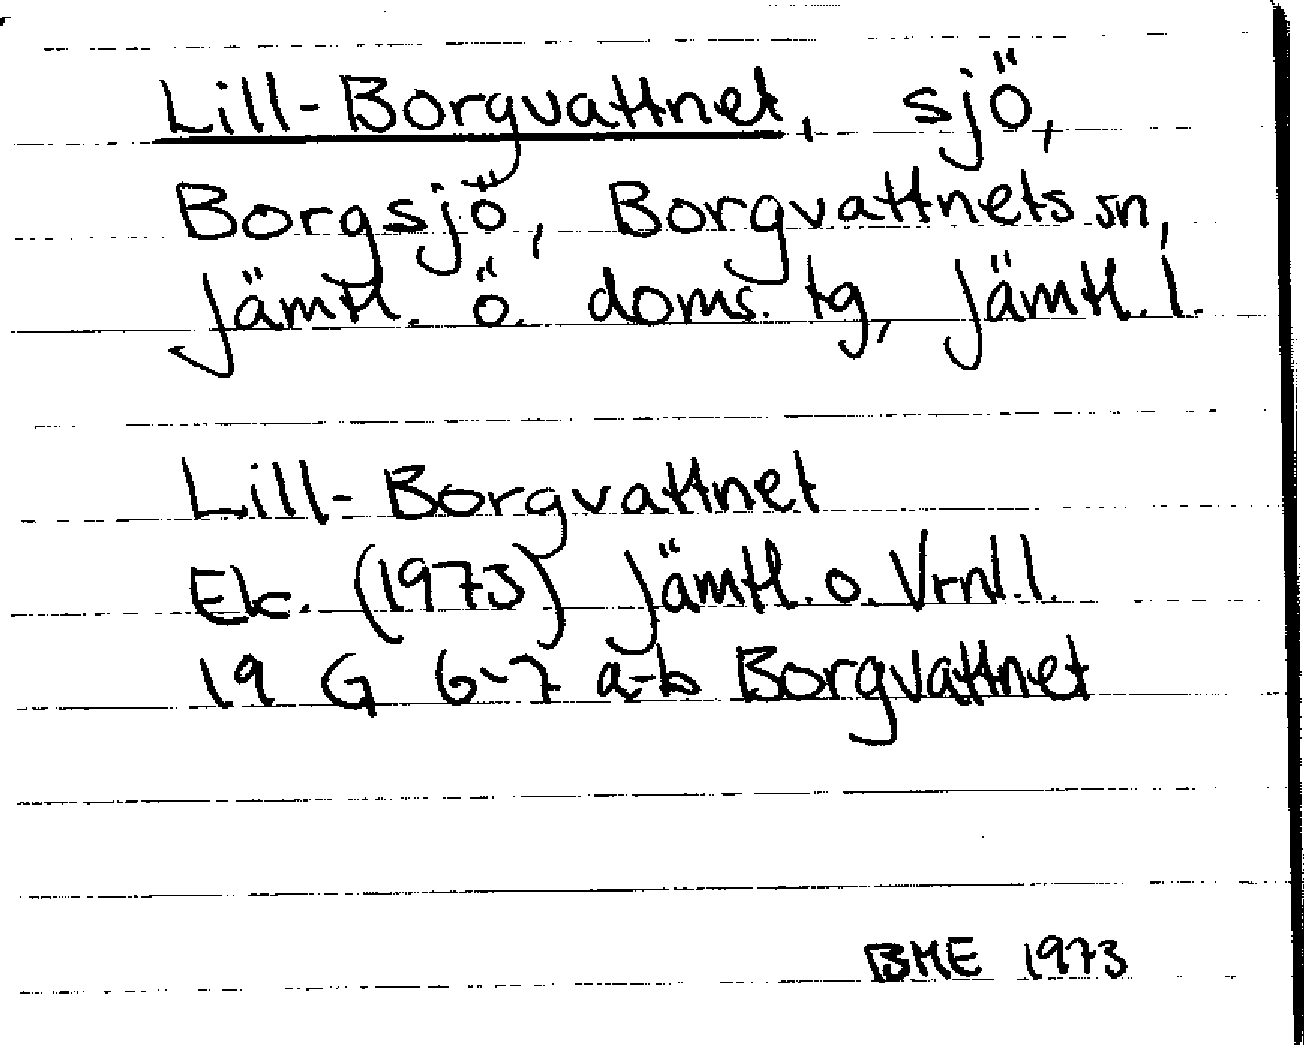 Lill-Borgvattnet, sjö,
Borgsjö, Borgvattnets sn,
Jämtl. ö. doms. tg, Jämtl. l.
Lill-Borgvattnet
Ek. (1973) Jämtl. o. Vrnl. l.
19 G 6-7 a-b Borgvattnet
BME 1973